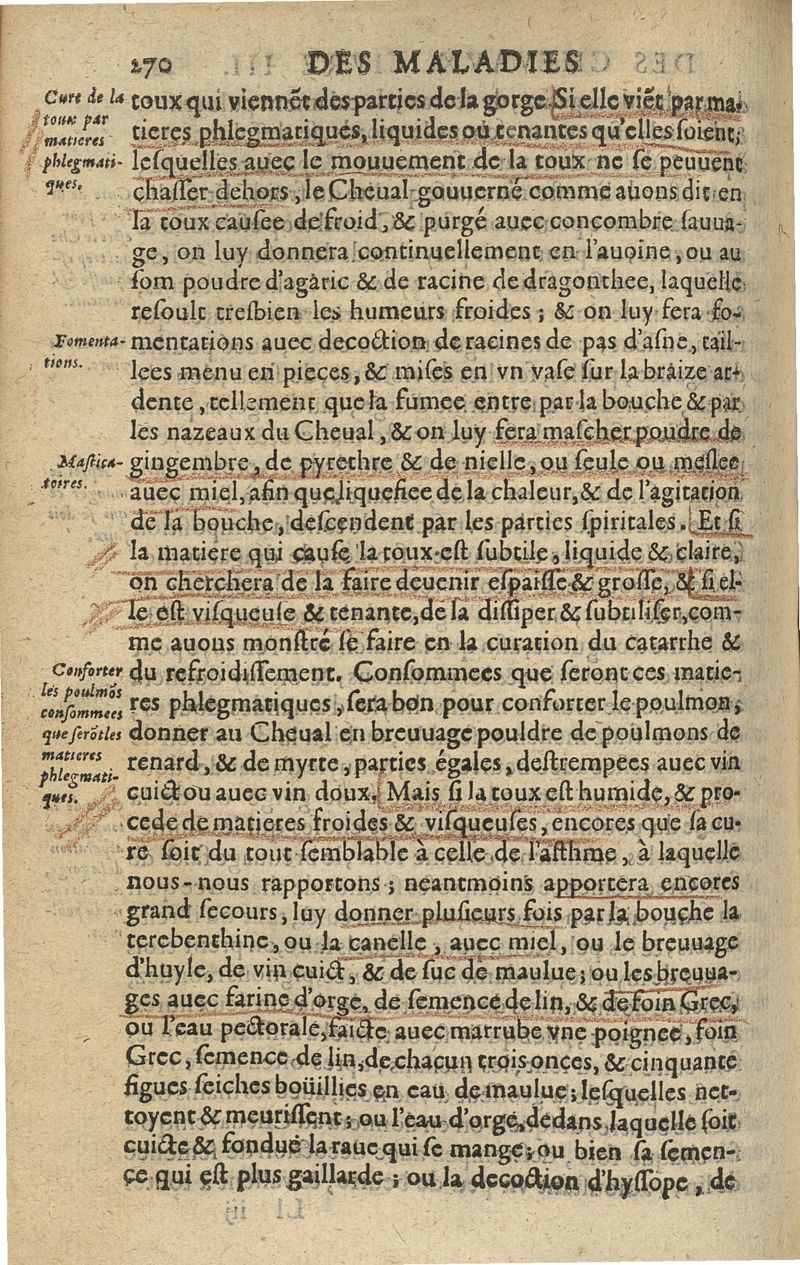 270 DES MALADIES
Cure de la
toux par
matieres
phlegmati-
ques.
toux qui viennẽt des parties de la gorge. Si elle viẽt par ma-
tieres phlegmatiques, liquides ou tenantes qu'elles soient,
lesquelles auec le mouuement de la toux ne se peuuent
chasser dehors, le Cheual gouuerné comme auons dit en
la toux causee de froid, & purgé auec concombre sauua-
ge, on luy donnera continuellement en l'auoine, ou au
som poudre d'agaric & de racine de dragonthee, laquelle
resoult tresbien les humeurs froides ; & on luy fera fo-
Fomenta-
tions.
mentations auec decoction de racines de pas d'asne, tail-
lees menu en pieces, & mises en vn vase sur la braize ar-
dente, tellement que la fumee entre par la bouche & par
les nazeaux du Cheual, & on luy fera mascher poudre de
Mastica-
toires.
gingembre, de pyrethre & de nielle, ou seule ou meslee
auec miel, afin que liquefiee de la chaleur, & de l'agitation
de la bouche, descendent par les parties spiritales. Et si
la matiere qui cause la toux est subtile, liquide & claire,
on cherchera de la faire deuenir espaisse & grosse, & si el-
le est visqueuse & tenante, de la dissiper & subtiliser, com-
me auons monstré se faire en la curation du catarrhe &
Conforter
les poulmõs
consommees
que serõt les
matieres
phlegmati-
ques.
du refroidissement. Consommees que seront ces matie-
res phlegmatiques, sera bon pour conforter le poulmon,
donner au Cheual en breuuage pouldre de poulmons de
renard, & de myrte, parties égales, destrempees auec vin
cuict ou auec vin doux. Mais si la toux est humide, & pro-
cede de matieres froides & visqueuses, encores que sa cu-
re soit du tout semblable à celle de l'asthme, à laquelle
nous-nous rapportons ; neantmoins apportera encores
grand secours, luy donner plusieurs fois par la bouche la
terebenthine, ou la canelle, auec miel, ou le breuuage
d'huyle, de vin cuict, & de suc de maulue ; ou les breuua-
ges auec farine d'orge, de semence de lin, & de foin Grec,
ou l'eau pectorale, faicte auec marrube vne poignee, foin
Grec, semence de lin, de chacun trois onces, & cinquante
figues seiches boüillies en eau de maulue ; lesquelles net-
toyent & meurissent ; ou l'eau d'orge, dedans laquelle soit
cuicte & fondué la raue qui se mange ; ou bien sa semen-
ce qui est plus gaillarde ; ou la decoction d'hyssope, de